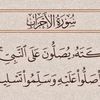 سُورَةُ الأَحْزَابِ
ـكَتَهُ يُصَلُّونَ عَلَى ٱلنَّبِيِّ
صَلُّوا۟ عَلَيْهِ وَسَلِّمُوا۟ تَسْلِيـ